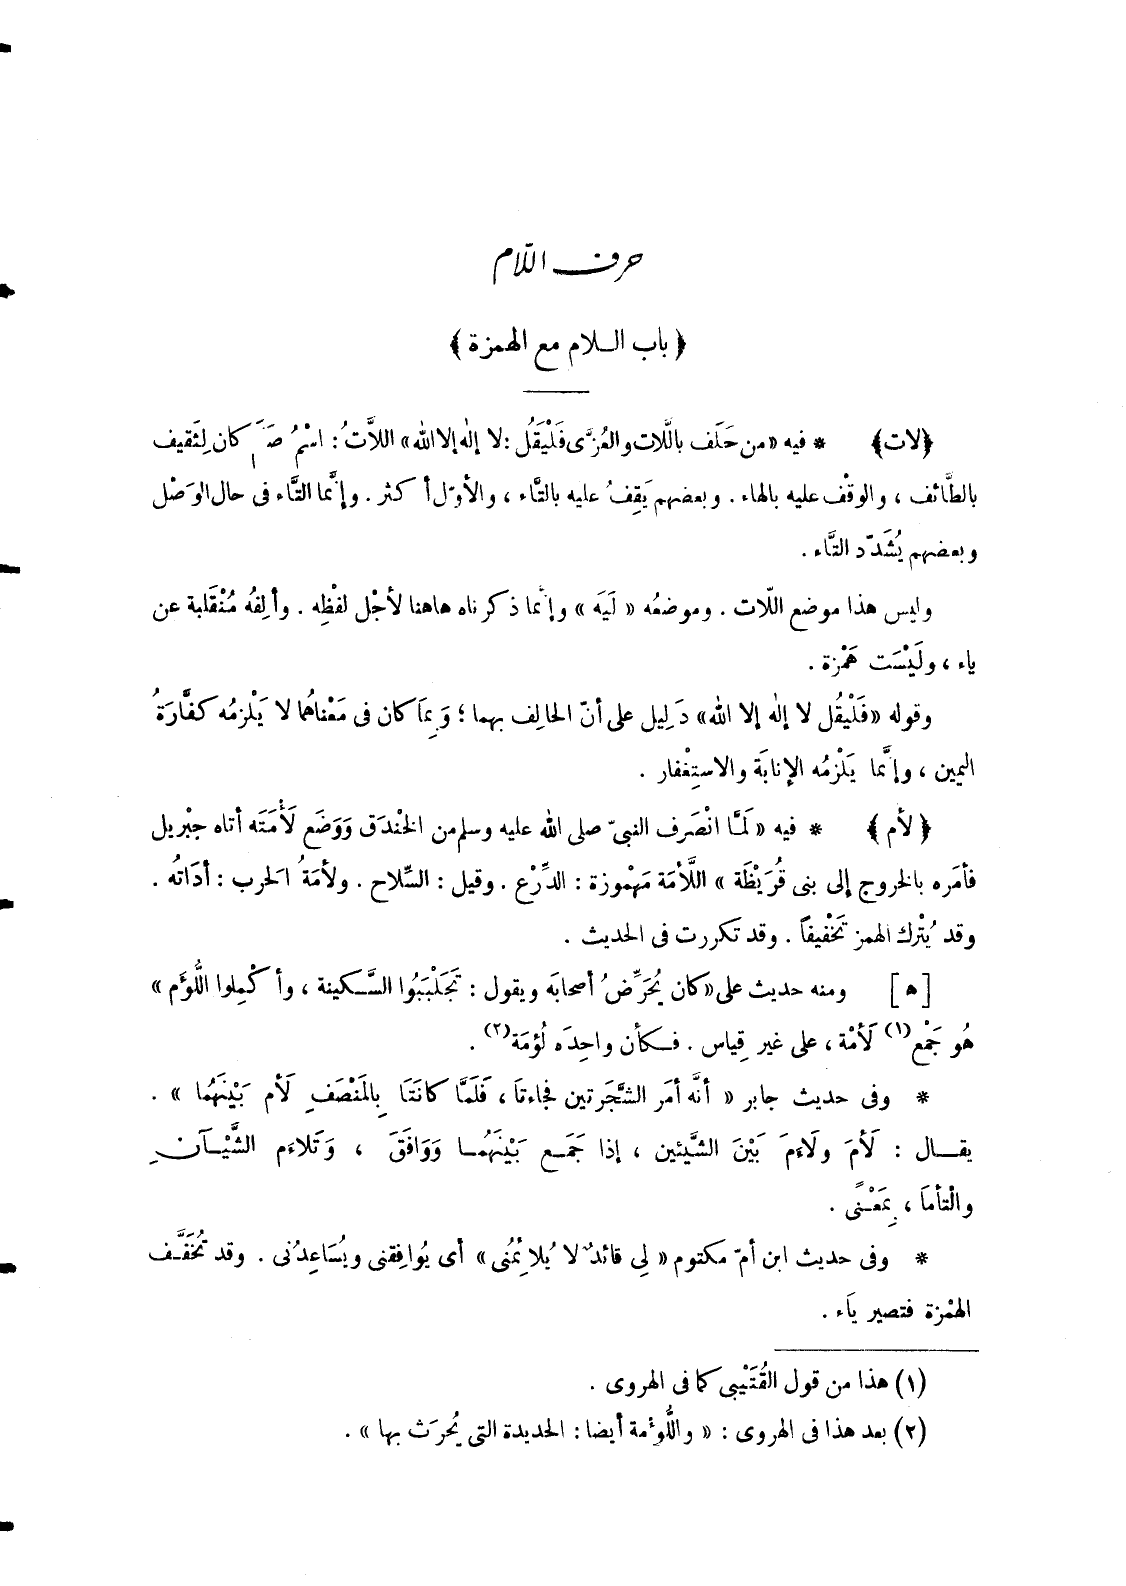 حرف اللّام
﴿ باب اللام مع الهمزة ﴾
﴿لات﴾ * فيه «من حَلَف باللَّات والعُزَّى فَلْيَقُل: لا إله إلا الله» اللاَّتُ: اسْمُ صَنَم كان لِثَقيف
بالطَّائف ، والوقْف عليه بالهاء . وبعضهم يَقِفُ عليه بالتَّاء ، والأوّل أكثر . وإنَّما التَّاء فى حال الوَصْل
وبعضهم يُشَدّد التَّاء .
وليس هذا موضع اللّات . وموضعُه « لَيَه » وإنَّما ذكرناه هاهنا لأجْل لفظِه . وألِفُه مُنْقَلبة عن
ياء ، ولَيْسَت هَمْزة .
وقوله «فَلْيقُل لا إله إلا الله» دَلِيل على أنّ الحالِف بهما ؛ وَبِمَا كان فى مَعْناهُما لا يَلْزمُه كفَّارَةُ
اليمين ، وإنَّما يَلْزمُه الإنابَة والاستِغْفار .
﴿ لأم ﴾ * فيه « لَمَّا انْصَرف النبىّ صلى الله عليه وسلم من الخنْدَق وَوَضَع لَأْمَتَه أتاه جبْريل
فأمَره بالخروج إلى بنى قُرَيْظَة » اللَّأمَة مَهْموزة : الدِّرْع . وقيل : السِّلاح . ولأمَةُ الحَرب : أدَاتُه .
وقد يُتْرك الهمز تَخْفيفاً . وقد تكررت فى الحديث .
[ ه ] ومنه حديث على «كان يُحَرِّضُ أصحابَه ويقول : تَجَلْبَبُوا السَّكينة ، وأكْمِلوا اللُّؤَم »
هُو جَمْع(١) لَأمْة ، على غير قِياس . فكأن واحِدَه لُؤمَة(٢) .
* وفى حديث جابر « أنَّه أمَر الشَّجَرتين فجاءتا ، فَلَمَّا كانَتَا بِالمَنْصَفِ لَأم بَيْنَهُما » .
يقال : لَأمَ ولَاءَمَ بَيْنَ الشَّيئين ، إذا جَمَع بَيْنَهُما وَوَافَقَ ، وَتَلاءَم الشَّيْآنِ
والْتأمَا ، بِمَعْنًى .
* وفى حديث ابن أمّ مكتوم « لِى قائدٌ لا يُلائِمُنى » أى يُوافِقنى ويُسَاعِدُنى . وقد تُخَفَّف
الهمْزة فتصير يَاء .
(١) هذا من قول القُتَيْبى كما فى الهروى .
(٢) بعد هذا فى الهروى : « واللُّؤمة أيضا : الحديدة التى يُحرَث بها » .